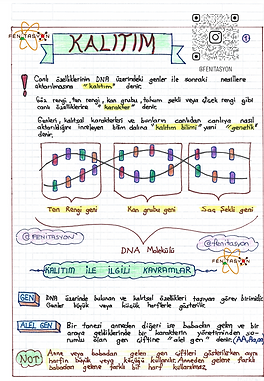 FENİTASYON
KALITIM
1
@FENITASYON
! Canlı özelliklerinin DNA üzerindeki genler ile sonraki nesillere
aktarılmasına "kalıtım" denir.
Göz rengi, ten rengi, kan grubu, tohum şekli veya çiçek rengi gibi
canlı özelliklerine "karakter" denir.
Genleri, kalıtsal karakterleri ve bunların canlıdan canlıya nasıl
aktarıldığını inceleyen bilim dalına "kalıtım bilimi" yani "genetik"
denir.
Ten Rengi geni Kan grubu geni Saç Şekli geni
@FENITASYON
@fenitasyon
DNA Molekülü
FENİTASYON
KALITIM İLE İLGİLİ KAVRAMLAR
GEN DNA üzerinde bulunan ve kalıtsal özellikleri taşıyan görev birimidir.
Genler büyük veya küçük harflerle gösterilir.
ALEL GEN Bir tanesi anneden diğeri ise babadan gelen ve bir
araya geldiklerinde bir karakterin yönetiminden so-
rumlu olan gen çiftine "alel gen" denir. (AA, Aa, aa)
NOT Anne veya babadan gelen gen çiftleri gösterilirken aynı
harfin büyük veya küçüğü kullanılır. Anneden gelene farklı
babadan gelene farklı bir harf kullanılmaz.